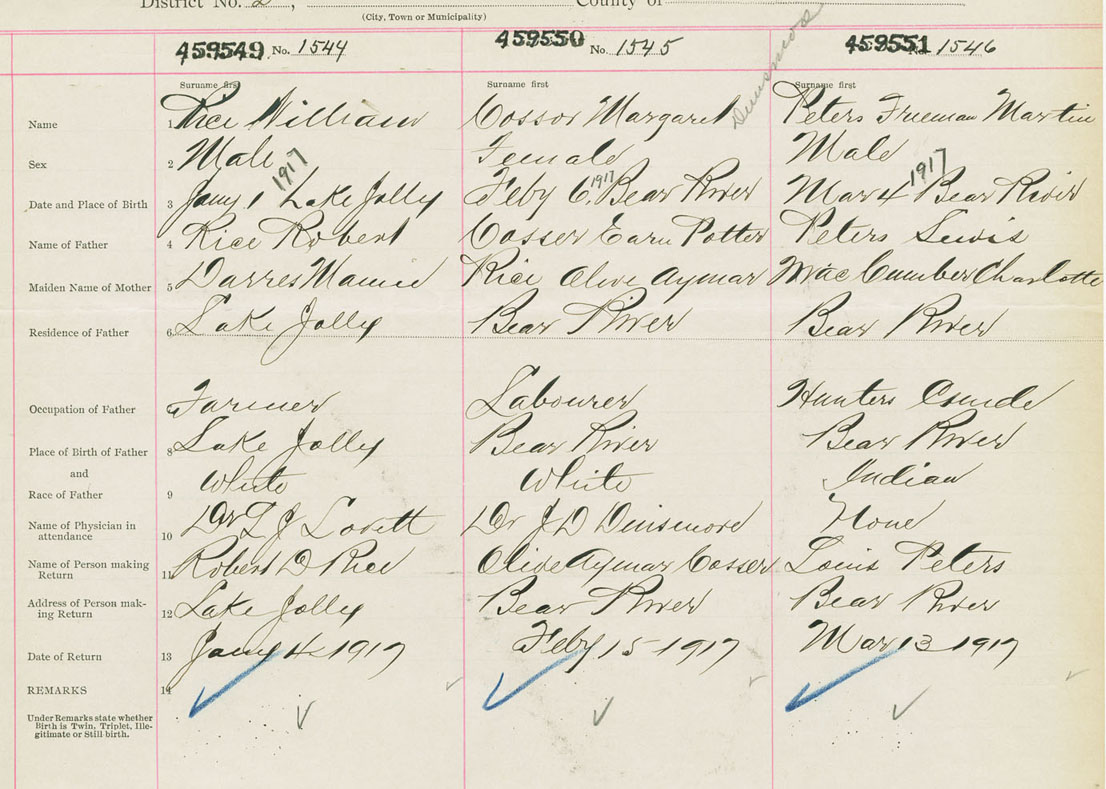 District No. 2, County of
(City, Town or Municipality)
459549 No. 1544 459550 No. 1545 459551 No. 1546
Surname first Surname first Surname first
Dunsmore
Name 1 Rice William Cossor Margaret Peters Freeman Martin
Sex 2 Male Female Male
Date and Place of Birth 3 Jany 1 1917 Lake Jolly Feby 6, 1917 Bear River Mar 4 1917 Bear River
Name of Father 4 Rice Robert Cosser Earn Potter Peters Lewis
Maiden Name of Mother 5 Darres Mamie Rice Olive Aymar MacCumber Charlotte
Residence of Father 6 Lake Jolly Bear River Bear River
Occupation of Father Farmer Labourer Hunters
Place of Birth of Father 8 Lake Jolly Bear River Bear River
and
Race of Father 9 White White Indian
Name of Physician in
attendance 10 Dr L J Lovett Dr J D Dinsmore None
Name of Person making
Return 11 Robert D Rice Olive Aymar Cosser Louis Peters
Address of Person mak-
ing Return 12 Lake Jolly Bear River Bear River
Date of Return 13 Jany 4 1917 Feby 15 1917 Mar 13 1917
REMARKS 14
Under Remarks state whether
Birth is Twin, Triplet, Ille-
gitimate or Still birth.